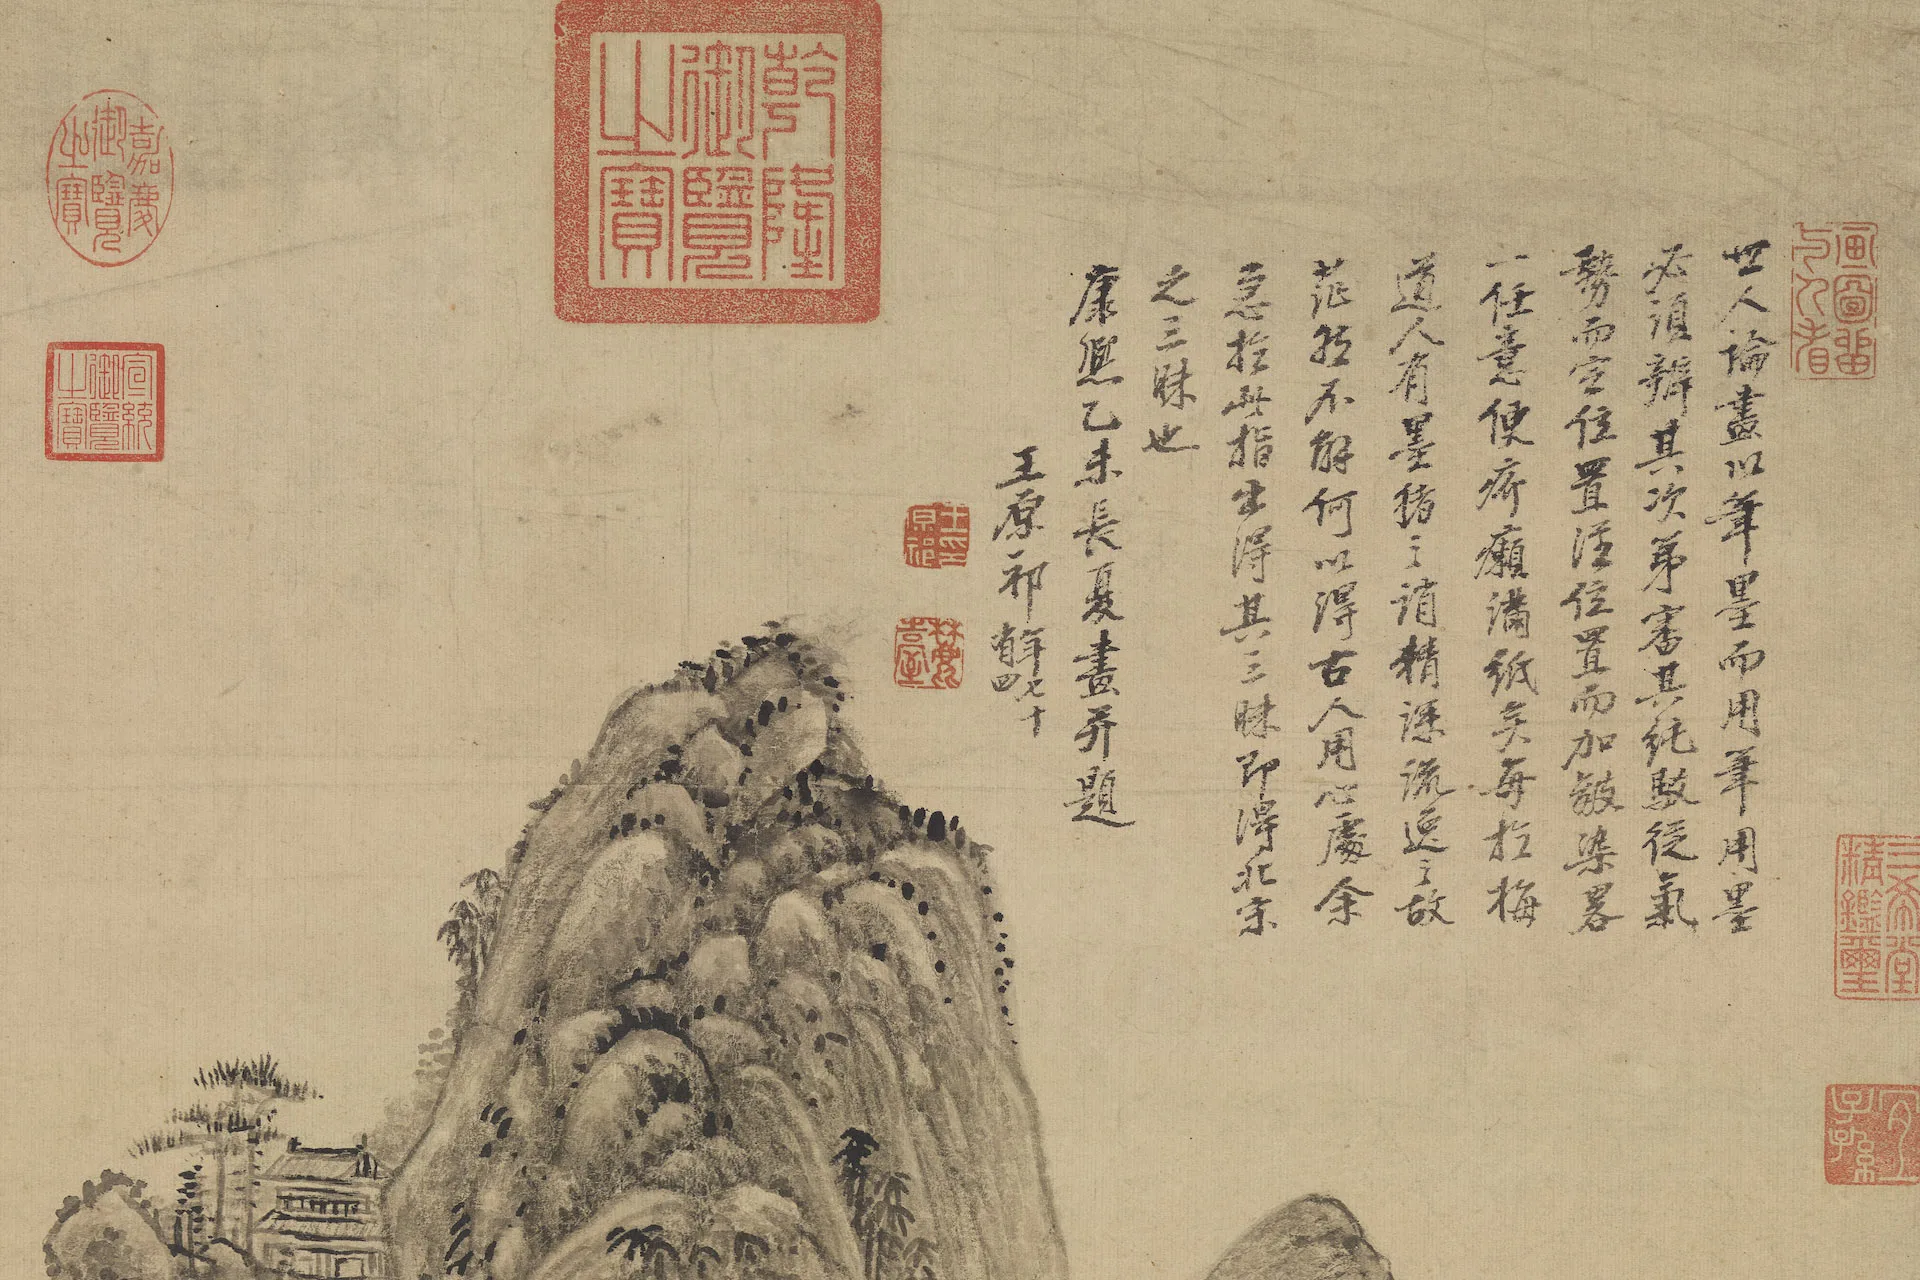 画圖留与人看
世人論畫以筆墨而用筆用墨
必須辨其次第審其純駁從氣
勢而定位置從位置而加皴染畧
一任意便疥癩滿紙矣每於梅
道人有墨猪之誚精深流逸之故
茫然不解何以得古人用心處余
急於此指出得其三昧即得北宋
之三昧也
康熙乙未長夏畫并題
王原祁年七十有四
王原祁印
麓臺
三希堂精鑑璽
宜子孫
乾隆御覽之寶
嘉慶御覽之寶
宣統御覽之寶